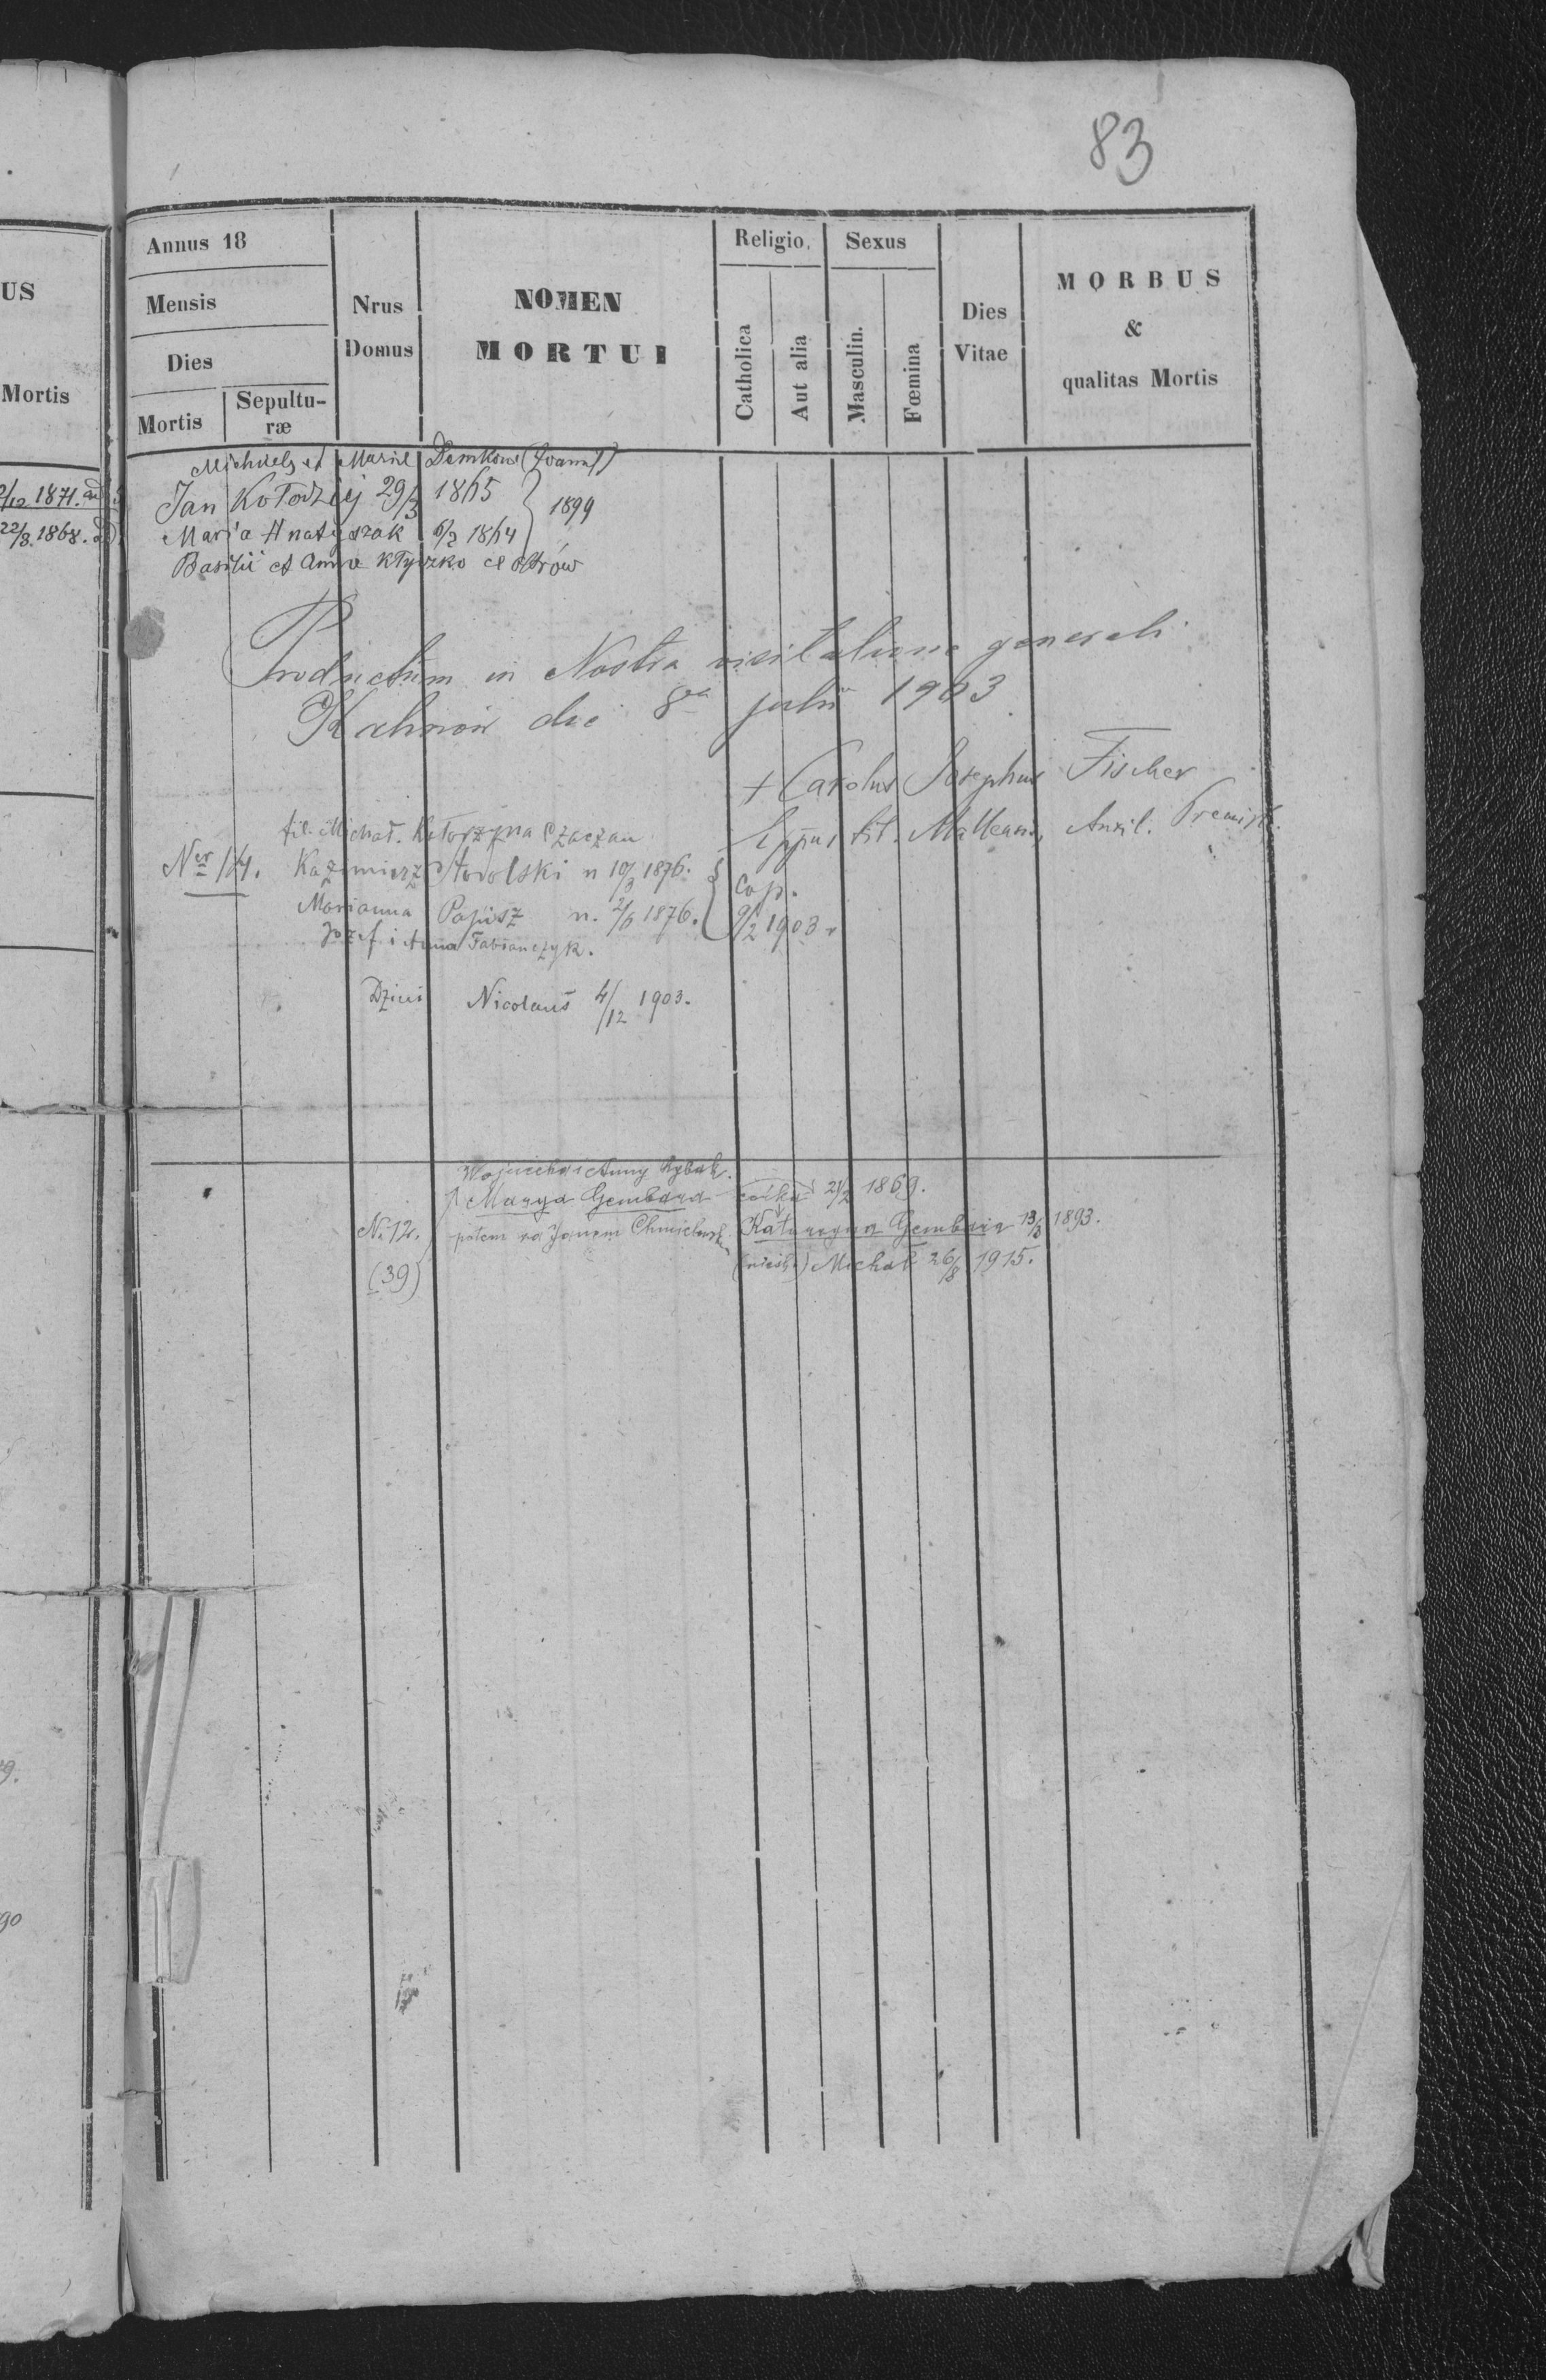 83
US
Mortis
Annus 18
Mensis
Dies
Mortis
Sepultu-
ræ
Nrus
Domus
NOMEN
MORTUI
Religio.
Catholica
Aut alia
Sexus
Masculin.
Fœmina
Dies
Vitae
MORBUS
&
qualitas Mortis
2/12 1871.
22/3. 1868.
Michaelis et Mariæ Demkow (Joann)
Jan Kołodziej 29/3 1865
1899
Maria Hnatyszak 6/2 1864
Basilii et Annæ Kłyszko
Productum in Nostra visitatione generali
die 8va julii 1903
+ Carolus Josephus Fischer
Eppus tit. Mallensis, Auxil. Premisl.
fil. Michał. Katorzyna Czaczan
Ner 14. Kazimierz Stowolski n 10/3 1876.
Cop.
Marianna Papisz n. 2/6 1876.
9/2 1903 r
Jozef i Anna Fabianczyk.
Nicolaus 4/12 1903.
Wojciecha i Anny Rybak.
Marya Gembara córka 21/2 1869.
N. 12. potem za Janem
Katarzyna Gembara 13/3 1893.
(39)
Michał 26/8 1915.